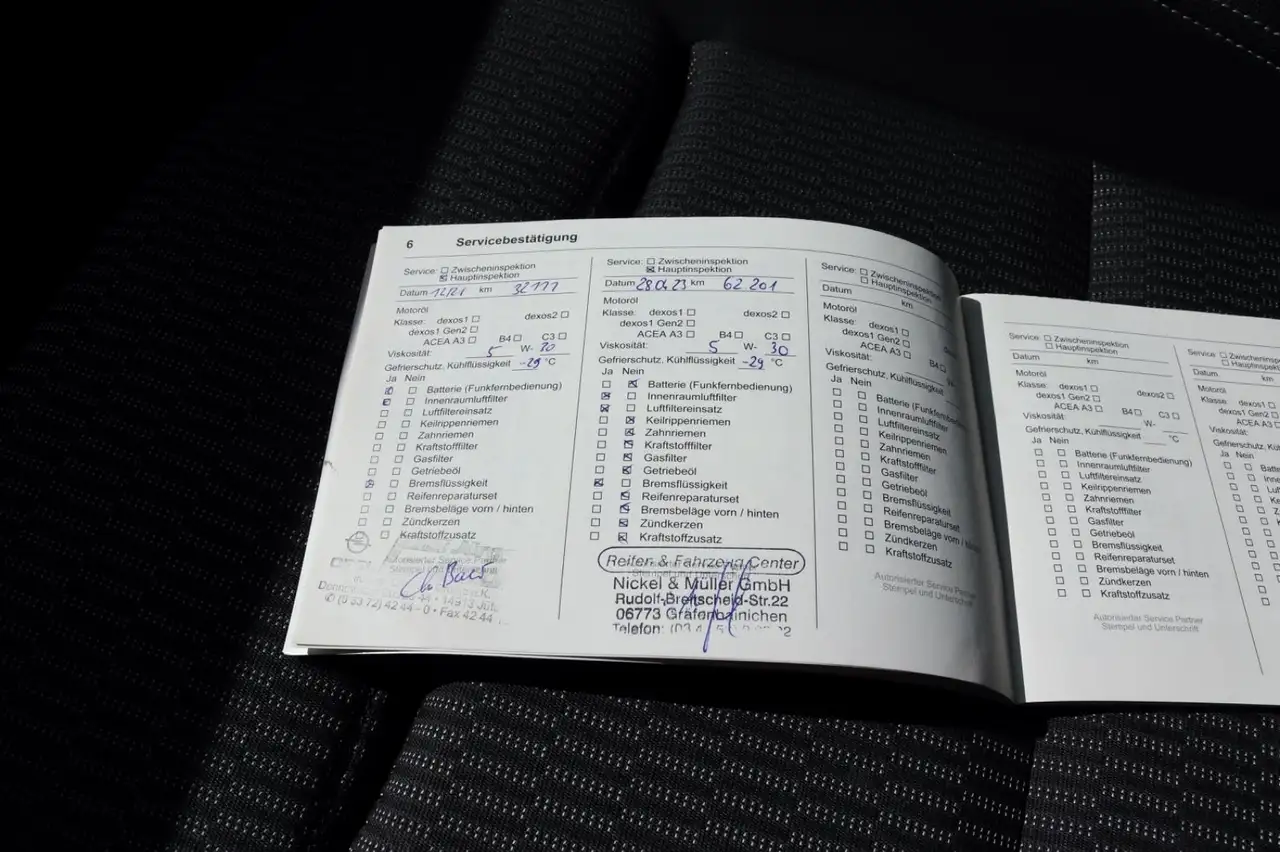 6 Servicebestätigung
Service: Zwischeninspektion
Hauptinspektion
Datum 12/21 km 32111
Motoröl
Klasse: dexos1 dexos2
dexos1 Gen2
ACEA A3 B4 C3
Viskosität: 5 W-
Gefrierschutz, Kühlflüssigkeit -29 °C
Ja Nein
Batterie (Funkfernbedienung)
Innenraumluftfilter
Luftfiltereinsatz
Keilrippenriemen
Zahnriemen
Kraftstofffilter
Gasfilter
Getriebeöl
Bremsflüssigkeit
Reifenreparaturset
Bremsbeläge vorn / hinten
Zündkerzen
Kraftstoffzusatz
Autorisierter Service Partner
14913 Jüt
(0 33 72) 42 44 - 0 • Fax 42 44
Service: Zwischeninspektion
Hauptinspektion
Datum 28.04.23 km 62 201
Motoröl
Klasse: dexos1 dexos2
dexos1 Gen2
ACEA A3 B4 C3
Viskosität: 5 W- 30
Gefrierschutz, Kühlflüssigkeit -29 °C
Ja Nein
Batterie (Funkfernbedienung)
Innenraumluftfilter
Luftfiltereinsatz
Keilrippenriemen
Zahnriemen
Kraftstofffilter
Gasfilter
Getriebeöl
Bremsflüssigkeit
Reifenreparaturset
Bremsbeläge vorn / hinten
Zündkerzen
Kraftstoffzusatz
Reifen & Fahrzeug Center
Nickel & Müller GmbH
Rudolf-Breitscheid-Str.22
06773 Gräfenhainichen
Telefon:
Service: Zwischeninspektion
Hauptinspektion
Datum km
Motoröl
Klasse: dexos1
dexos1 Gen2
ACEA A3 B4
Viskosität:
Gefrierschutz, Kühlflüssigkeit
Ja Nein
Batterie (Funkfernbedie
Innenraumluftfilter
Luftfiltereinsatz
Keilrippenriemen
Zahnriemen
Kraftstofffilter
Gasfilter
Getriebeöl
Bremsflüssigkeit
Reifenreparaturset
Bremsbeläge vorn /
Zündkerzen
Kraftstoffzusatz
Autorisierter Service Partner
Stempel und Unterschrift
Service: Zwischeninspektion
Hauptinspektion
Datum km
Motoröl
Klasse: dexos1 dexos2
dexos1 Gen2
ACEA A3 B4 C3
Viskosität: W-
Gefrierschutz, Kühlflüssigkeit °C
Ja Nein
Batterie (Funkfernbedienung)
Innenraumluftfilter
Luftfiltereinsatz
Keilrippenriemen
Zahnriemen
Kraftstofffilter
Gasfilter
Getriebeöl
Bremsflüssigkeit
Reifenreparaturset
Bremsbeläge vorn / hinten
Zündkerzen
Kraftstoffzusatz
Autorisierter Service Partner
Stempel und Unterschrift
Service: Zwischeninspe
Hauptinspektion
Datum km
Motoröl
Klasse: dexos1
dexos1 Gen2
ACEA A3
Viskosität:
Gefrierschutz, Kü
Ja Nein
Batte
Inne
Luf